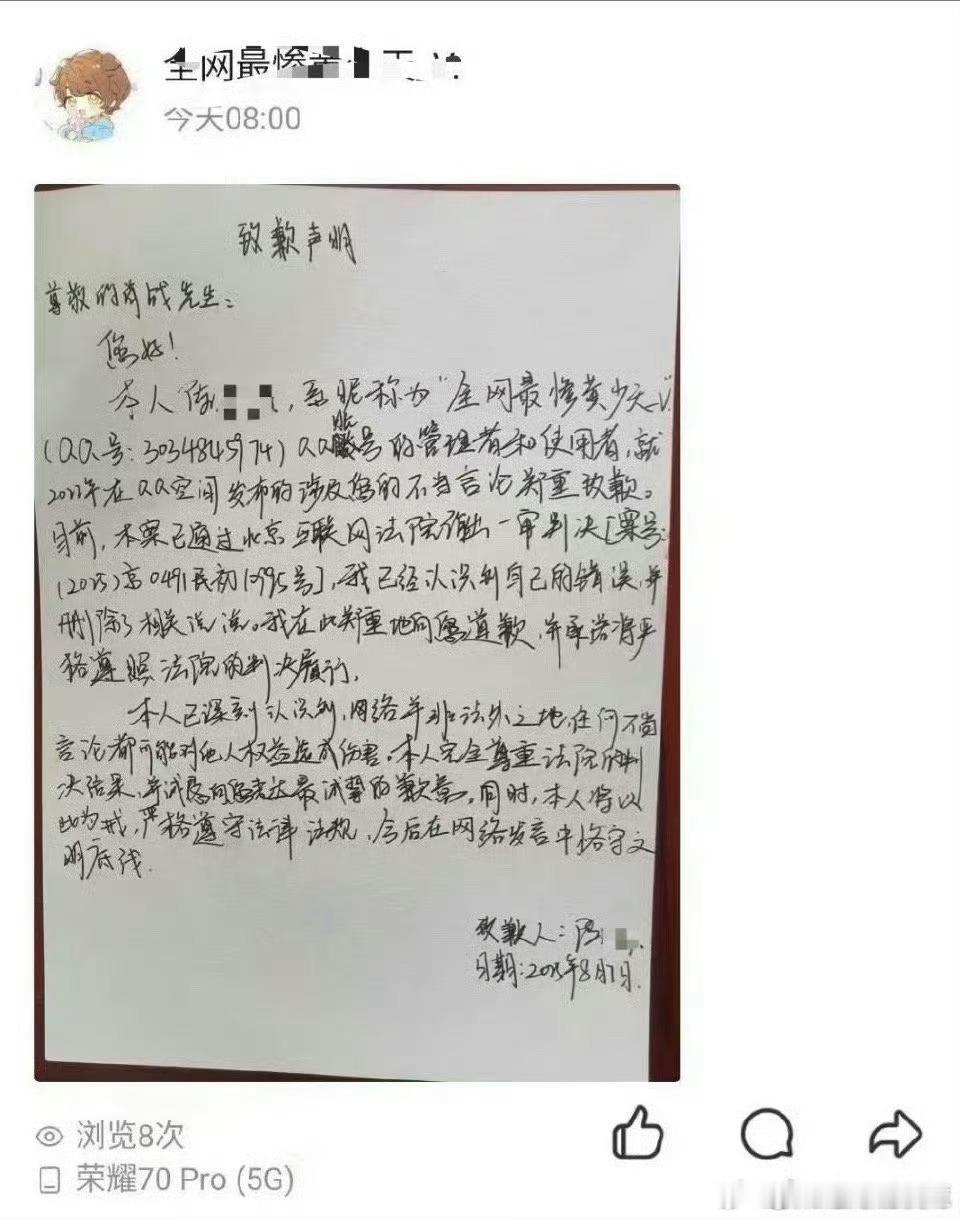 全网最惨
今天08:00
致歉声明
尊敬的肖战先生：
您好！
本人陈，系昵称为“全网最惨黄少天_V”
（QQ号：3034845974）QQ账号的管理者和使用者，就
2022年在QQ空间发布的涉及您的不当言论郑重致歉。
目前，本案已通过北京互联网法院作出一审判决[案号：
（2025）京0491民初1995号]，我已经认识到自己的错误，并
删除了相关说说。我在此郑重地向您道歉，并承诺将严
格遵照法院的判决履行。
本人已深刻认识到，网络并非法外之地，任何不当
言论都可能对他人权益造成伤害。本人完全尊重法院的判
决结果，并诚恳向您表达最诚挚的歉意。同时，本人将以
此为戒，严格遵守法律法规，今后在网络发言中恪守文
明底线。
致歉人：陈
日期：2025年8月7日.
浏览8次
荣耀70 Pro (5G)